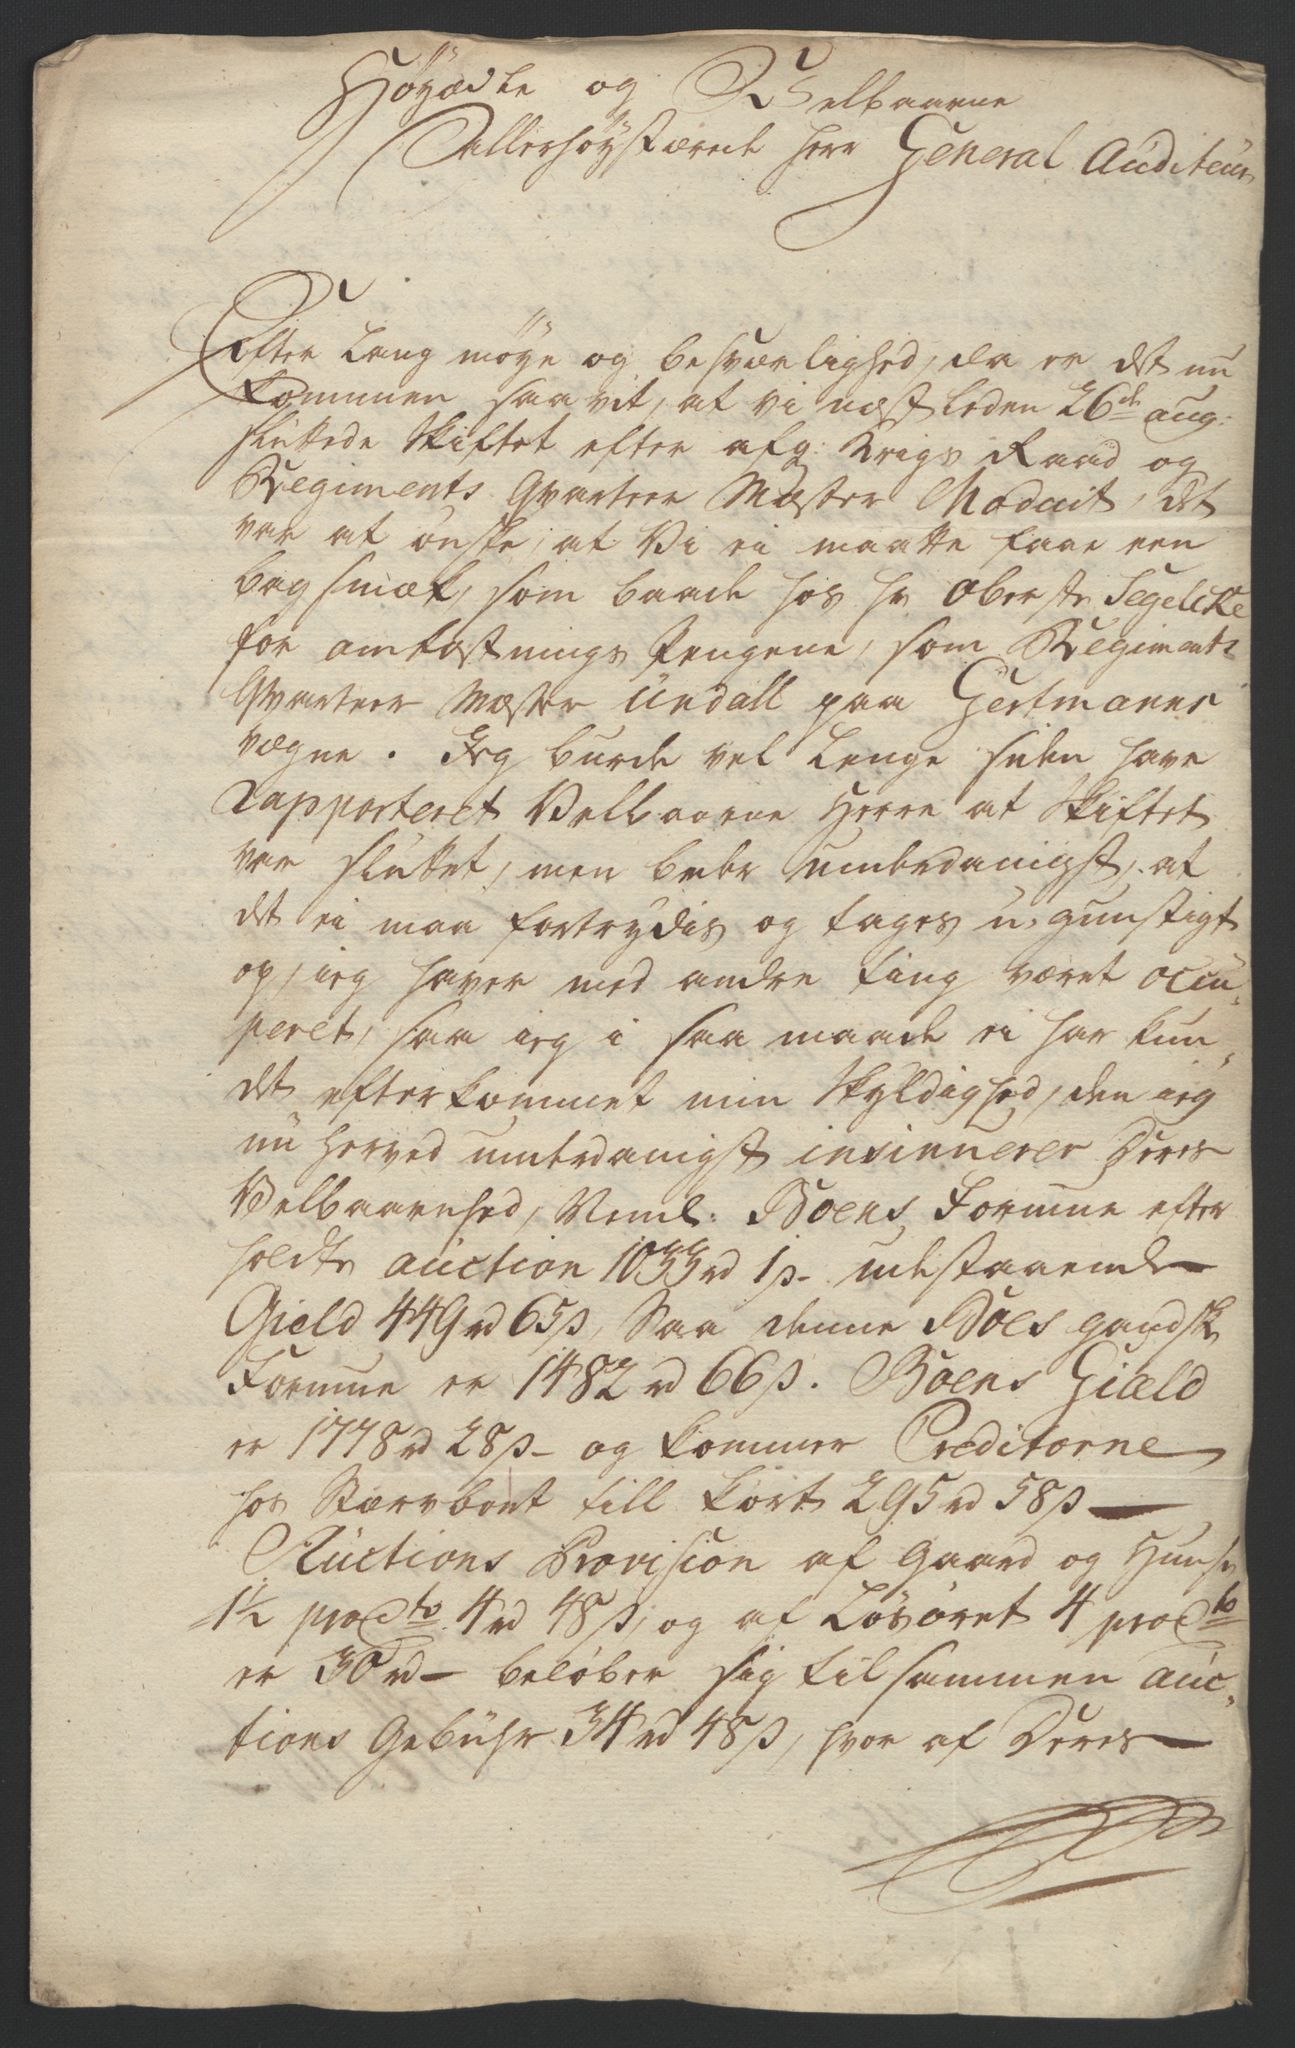 Høyædle og Velbaarne
Allerhøystærede Herr General Auditeur
Efter Lang møye og besværlighed, da er det nu
kommen saa vit, at vi næst leden 26de aug:
sluttede Skiftet efter afg: Krigs Raad og
Regiments Qvarteer Mæster Moduit, det
var at ønske, at Vi ei maatte faae een
bag smæk, som baade hos Hr Oberste Segelcke
for omkostnings Pengene, som Regiments
Qvarteer Mæster Undall paa Gertmanns
vægne. Jeg burde vel Længe siden have
Rapporteret Velbaarne Herre at Skiftet
var sluttet, men beder underdanigst, at
det ei maa fortrydis og tages u-gunstigt
op, ieg haver med andre ting været occu-
peret, saa ieg i saa maade ei har kun-
det efterkommet min Skyldighed, den ieg
nu herved underdanigst insinuerer Deres
Velbaarenhed, Neml: Boens Formue efter
holdte auction 1033 rd 1 s - udestaaende
Gield 449 rd 65 s, Saa denne Boes gandske
Formue er 1482 rd 66 s. Boens Giæld
er 1778 rd 28 s - og kommer Creditorne
hos Stærvboet till kort 295 rd 58 s
Auctions Provision af Gaard og Huuse
1½ pro Cto 4 rd 48 s, og af Løsøret 4 pro Cto
er 30 rd - beløber sig tilsammen auc-
tions Gebühr 34 rd 48 s, hvor af Deres